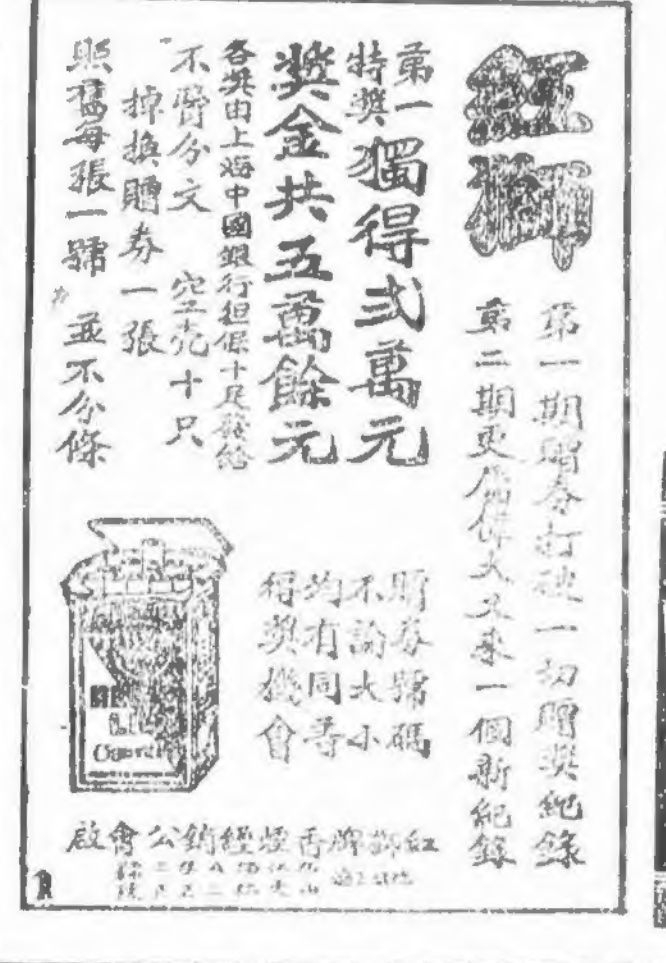 紅獅
第一期贈券打破一切贈獎紀錄
第二期更為偉大又來一個新紀錄
第一
特獎
獨得弍萬元
獎金共五萬餘元
各獎由上海中國銀行担保十足發給
不費分文 空壳十只
掉換贈券一張
照舊每張一號 並不分條
贈券號碼
不論大小
均有同等
得獎機會
紅獅牌香煙經銷公會啟